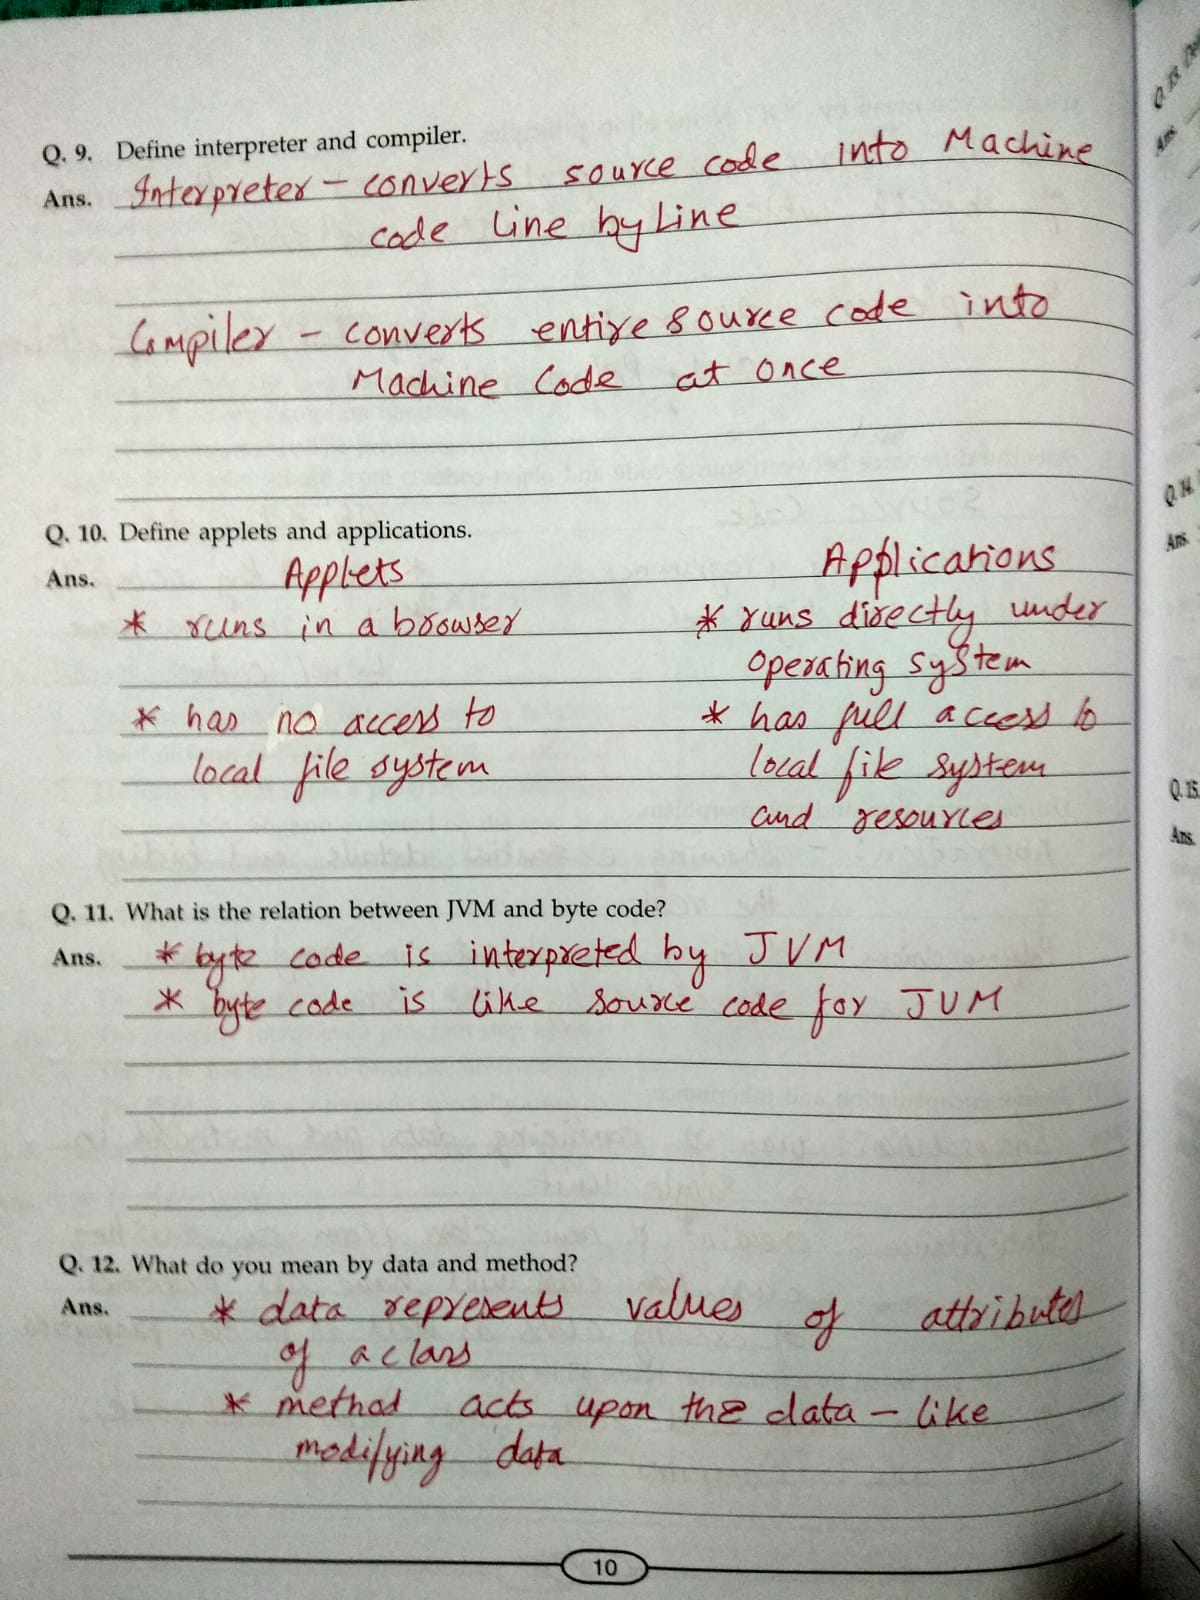 Q. 9. Define interpreter and compiler.
Ans. Interpreter - converts source code into Machine
code line by Line
Compiler - converts entire source code into
Machine Code at once
Q. 10. Define applets and applications.
Ans. Applets Applications
* runs in a browser * runs directly under
operating system
* has no access to * has full access to
local file system local file system
and resources
Q. 11. What is the relation between JVM and byte code?
Ans. * byte code is interpreted by JVM
* byte code is like source code for JVM
Q. 12. What do you mean by data and method?
Ans. * data represents values of attributes
of a class
* method acts upon the data - like
modifying data
10
Q. 14.
Ans.
Q. 15.
Ans.